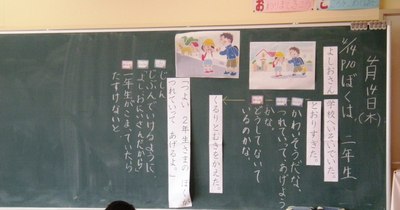 4月14日(木)
4/14
P10 ぼくは、二年生
よしおさん
学校へいそいでいた。
とおりすぎた。
かわいそうだな。
つれていって、あげよう
かな。
どうしてないて
いるのかな。
くるりとむきをかえた。
つれていって あげるよ。」
じしん
じぶんでいけるように、
よしおにいさんだから
一年生がこまっていたら
たすけないと